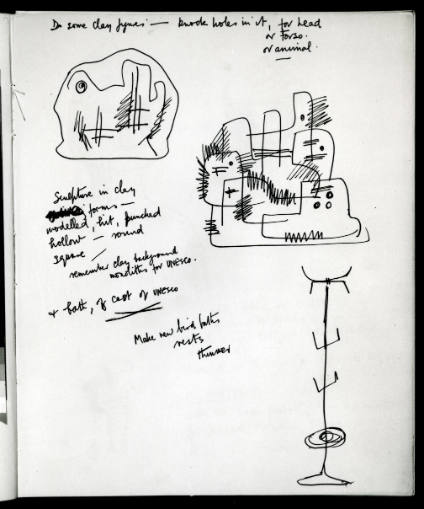 Do some clay figures — knock holes in it, for head
or Torso.
or animal.
Sculpture in clay
forms —
modelled, hit, punched
hollow — round
square —
remember clay background
monoliths for UNESCO.
+ bath, of cast of UNESCO
Make new bird baths
rests
thinner